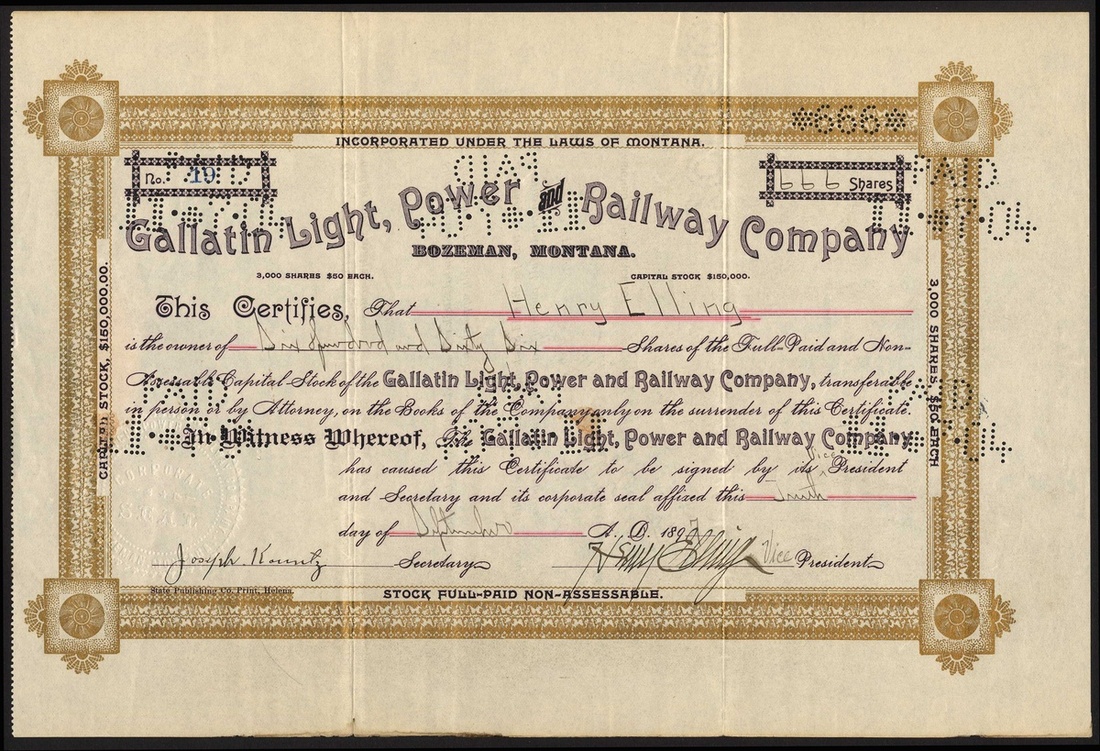 *666*
INCORPORATED UNDER THE LAWS OF MONTANA.
No. 19
666 Shares
PAID
Gallatin Light, Power and Railway Company
BOZEMAN, MONTANA.
3,000 SHARES $50 EACH.
CAPITAL STOCK $150,000.
This Certifies, That Henry Elling
is the owner of Six Hundred and Sixty Six Shares of the Full-Paid and Non-
Assessable Capital Stock of the Gallatin Light, Power and Railway Company, transferable
in person or by Attorney, on the Books of the Company only on the surrender of this Certificate.
In Witness Whereof, The Gallatin Light, Power and Railway Company
has caused this Certificate to be signed by its Vice President
and Secretary and its corporate seal affixed this Tenth
day of September A. D. 1897
Joseph Kountz Secretary
Henry Elling Vice President
State Publishing Co. Print, Helena.
STOCK FULL-PAID NON-ASSESSABLE.
CAPITAL STOCK, $150,000.00.
3,000 SHARES $50 EACH
PAID
PAID
CORPORATE
SEAL